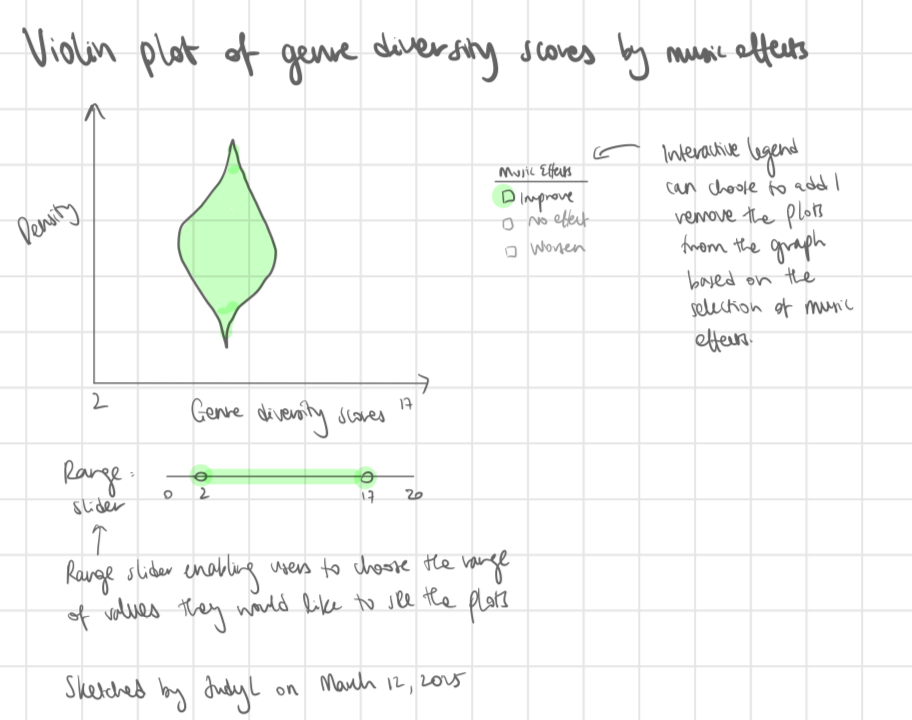 Violin plot of genre diversity scores by music effects
Density
2
Genre diversity scores
17
Music Effects
Improve
No effect
Worsen
Interactive legend
can choose to add /
remove the plots
from the graph
based on the
selection of music
effects.
Range :
slider
0
2
17
20
Range slider enabling users to choose the range
of values they would like to see the plots
Sketched by JudyL on March 12, 2025